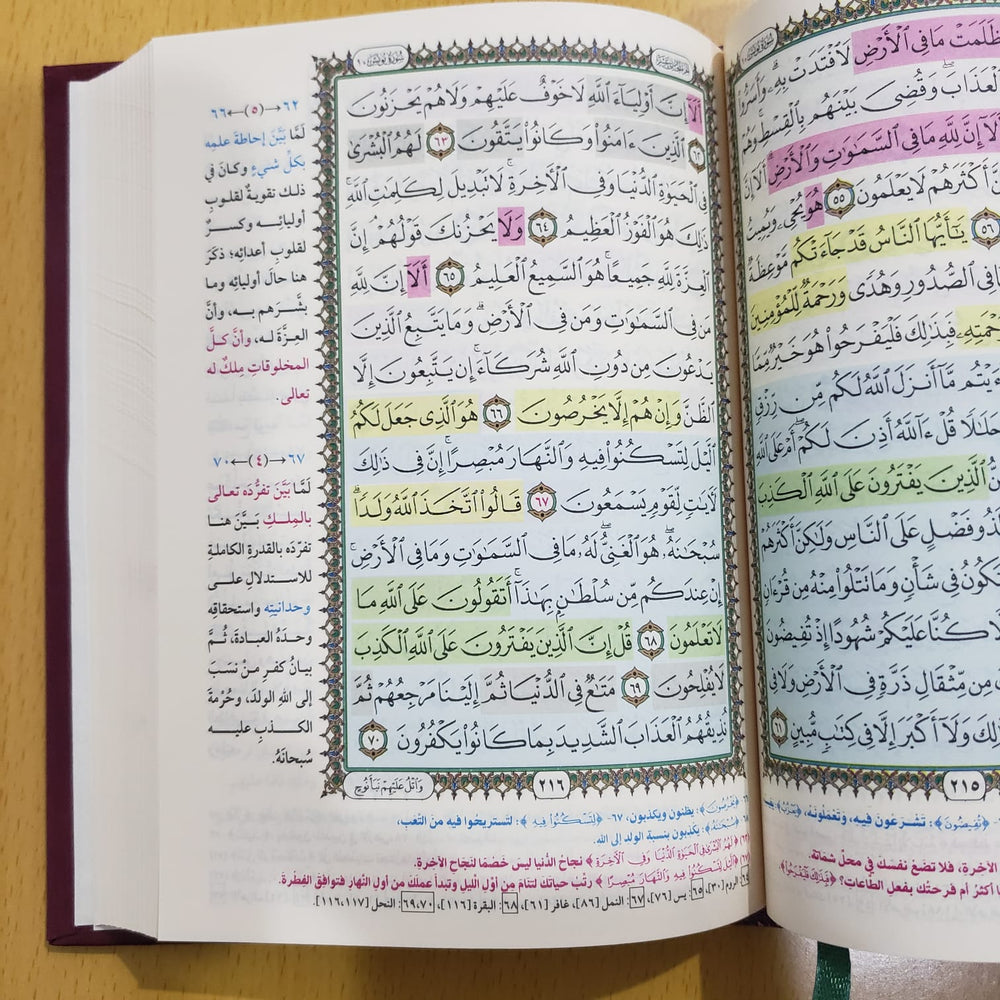 ظَلَمَتْ مَا فِى ٱلْأَرْضِ لَٱفْتَدَتْ بِهِۦ وَأَسَرُّوا۟
ٱلْعَذَابَ وَقُضِىَ بَيْنَهُم بِٱلْقِسْطِ وَهُمْ
أَلَآ إِنَّ لِلَّهِ مَا فِى ٱلسَّمَٰوَٰتِ وَٱلْأَرْضِ أَلَآ إِنَّ
أَكْثَرَهُمْ لَا يَعْلَمُونَ ٥٥ هُوَ يُحْىِۦ وَيُمِيتُ
٥٦ يَٰٓأَيُّهَا ٱلنَّاسُ قَدْ جَآءَتْكُم مَّوْعِظَةٌ
فِى ٱلصُّدُورِ وَهُدًى وَرَحْمَةٌ لِّلْمُؤْمِنِينَ
فَبِذَٰلِكَ فَلْيَفْرَحُوا۟ هُوَ خَيْرٌ مِّمَّا
أَنزَلَ ٱللَّهُ لَكُم مِّن رِّزْقٍ
قُلْ ءَآللَّهُ أَذِنَ لَكُمْ أَمْ عَلَى ٱللَّهِ
ٱلَّذِينَ يَفْتَرُونَ عَلَى ٱللَّهِ ٱلْكَذِبَ
فَضْلٍ عَلَى ٱلنَّاسِ وَلَٰكِنَّ أَكْثَرَهُمْ
تَكُونُ فِى شَأْنٍ وَمَا تَتْلُوا۟ مِنْهُ مِن قُرْءَانٍ
كُنَّا عَلَيْكُمْ شُهُودًا إِذْ تُفِيضُونَ
مِن مِّثْقَالِ ذَرَّةٍ فِى ٱلْأَرْضِ وَلَا فِى
وَلَآ أَكْبَرَ إِلَّا فِى كِتَٰبٍ مُّبِينٍ ٦١
٢١٥
﴿تُفِيضُونَ﴾: تشرعون فيه، وتعملونه،
الآخرةِ، فلا تضعْ نفسَكَ في محلِّ شماتة.
أكثرُ أم فرحتُكَ بفعلِ الطاعاتِ؟
سُورَةُ يُونُسَ ١٠
أَلَآ إِنَّ أَوْلِيَآءَ ٱللَّهِ لَا خَوْفٌ عَلَيْهِمْ وَلَا هُمْ يَحْزَنُونَ
٦٢ ٱلَّذِينَ ءَامَنُوا۟ وَكَانُوا۟ يَتَّقُونَ ٦٣ لَهُمُ ٱلْبُشْرَىٰ
فِى ٱلْحَيَوٰةِ ٱلدُّنْيَا وَفِى ٱلْءَاخِرَةِ لَا تَبْدِيلَ لِكَلِمَٰتِ ٱللَّهِ
ذَٰلِكَ هُوَ ٱلْفَوْزُ ٱلْعَظِيمُ ٦٤ وَلَا يَحْزُنكَ قَوْلُهُمْ إِنَّ
ٱلْعِزَّةَ لِلَّهِ جَمِيعًا هُوَ ٱلسَّمِيعُ ٱلْعَلِيمُ ٦٥ أَلَآ إِنَّ لِلَّهِ
مَن فِى ٱلسَّمَٰوَٰتِ وَمَن فِى ٱلْأَرْضِ وَمَا يَتَّبِعُ ٱلَّذِينَ
يَدْعُونَ مِن دُونِ ٱللَّهِ شُرَكَآءَ إِن يَتَّبِعُونَ إِلَّا
ٱلظَّنَّ وَإِنْ هُمْ إِلَّا يَخْرُصُونَ ٦٦ هُوَ ٱلَّذِى جَعَلَ لَكُمُ
ٱلَّيْلَ لِتَسْكُنُوا۟ فِيهِ وَٱلنَّهَارَ مُبْصِرًا إِنَّ فِى ذَٰلِكَ
لَءَايَٰتٍ لِّقَوْمٍ يَسْمَعُونَ ٦٧ قَالُوا۟ ٱتَّخَذَ ٱللَّهُ وَلَدًا
سُبْحَٰنَهُۥ هُوَ ٱلْغَنِىُّ لَهُۥ مَا فِى ٱلسَّمَٰوَٰتِ وَمَا فِى ٱلْأَرْضِ
إِنْ عِندَكُم مِّن سُلْطَٰنٍۭ بِهَٰذَآ أَتَقُولُونَ عَلَى ٱللَّهِ مَا
لَا تَعْلَمُونَ ٦٨ قُلْ إِنَّ ٱلَّذِينَ يَفْتَرُونَ عَلَى ٱللَّهِ ٱلْكَذِبَ
لَا يُفْلِحُونَ ٦٩ مَتَٰعٌ فِى ٱلدُّنْيَا ثُمَّ إِلَيْنَا مَرْجِعُهُمْ ثُمَّ
نُذِيقُهُمُ ٱلْعَذَابَ ٱلشَّدِيدَ بِمَا كَانُوا۟ يَكْفُرُونَ ٧٠
٢١٦
وَٱتْلُ عَلَيْهِمْ نَبَأَ نُوحٍ
٦٢→(٥)←٦٦
لَمَّا بَيَّنَ إحاطةَ علمِه
بكلِّ شيءٍ وكانَ في
ذلك تقويةٌ لقلوبِ
أوليائِه وكسرٌ
لقلوبِ أعدائِه؛ ذكرَ
هنا حالَ أوليائِه وما
بشَّرَهم به، وأنَّ
العزَّةَ له، وأنَّ كلَّ
المخلوقاتِ مِلكٌ له
تعالى.
٦٧→(٤)←٧٠
لَمَّا بَيَّنَ تفرُّدَه تعالى
بالمِلكِ بَيَّنَ هنا
تفرّدَه بالقدرةِ الكاملةِ
للاستدلالِ على
وحدانيتِه واستحقاقِه
وحدَهُ العبادةَ، ثُمَّ
بيانُ كفرِ منْ نسَبَ
إلى اللهِ الولدَ، وحُرْمةَ
الكذبِ عليه
سُبحانَهُ.
﴿يَخْرُصُونَ﴾: يظنون ويكذبون، ٦٧- ﴿لِتَسْكُنُوا۟ فِيهِ﴾: لتستريحوا فيه من التعب،
﴿سُبْحَٰنَهُ﴾: يكذبون بنسبة الولد إلى الله.
﴿لَهُمُ ٱلْبُشْرَىٰ فِى ٱلْحَيَوٰةِ ٱلدُّنْيَا وَفِى ٱلْءَاخِرَةِ﴾ نجاحُ الدُّنيا ليسَ خصْمًا لنَجَاحِ الآخرةِ.
﴿ٱلَّيْلَ لِتَسْكُنُوا۟ فِيهِ وَٱلنَّهَارَ مُبْصِرًا﴾ رتِّبْ حياتَكَ لتنَامَ مِن أوَّلِ الليلِ وتبدأَ عملَكَ من أولِ النَّهارِ فتوافقَ الفِطْرةَ.
الروم [٣٠]، ٦٥: يس [٧٦]، ٦٧: النمل [٨٦]، غافر [٦١]، ٦٨: البقرة [١١٦]، ٦٩،٧٠: النحل [١١٦،١١٧].